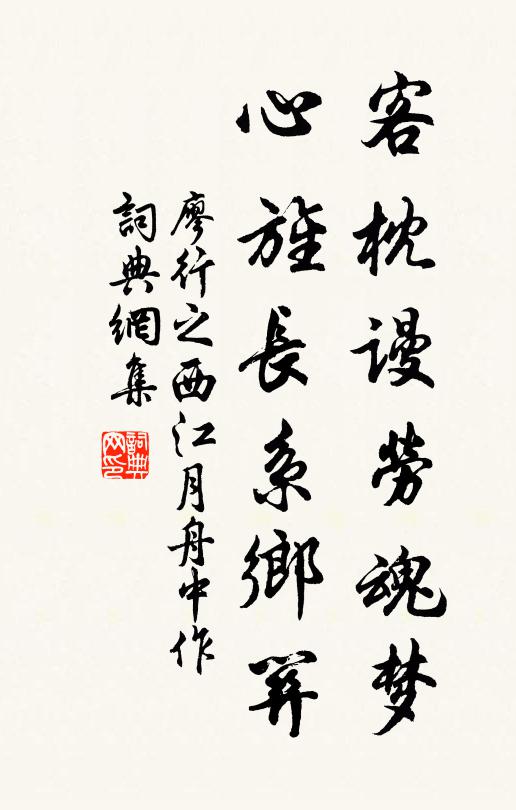 客枕谩勞魂梦
心旌長系鄉關
廖行之西江月舟中作
詞典網集
詞典网印